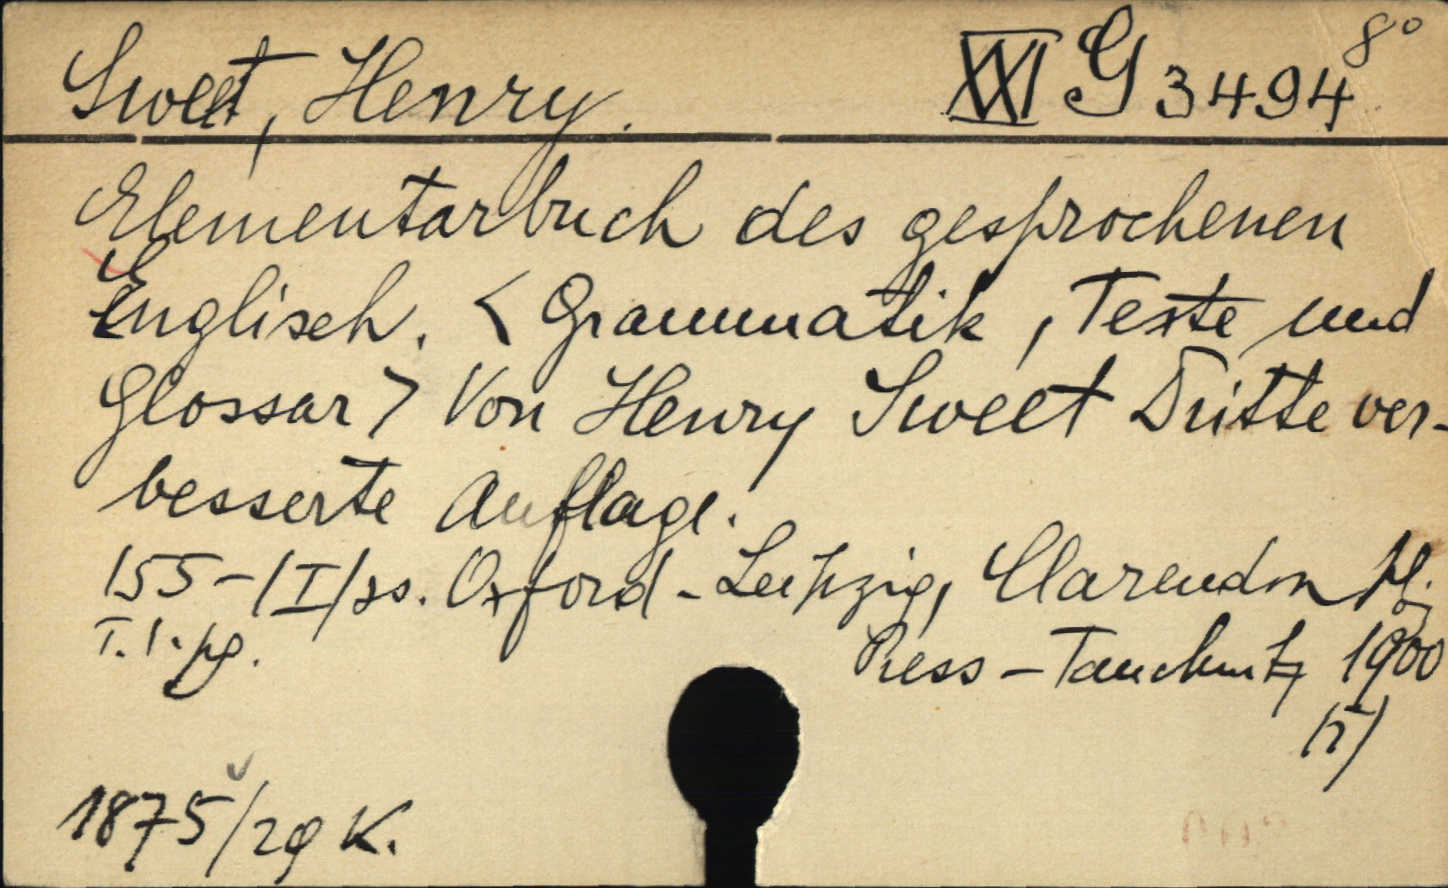 Sweet, Henry. XXI G 3494 8°
Elementarbuch des gesprochenen
Englisch. < Grammatik, Texte und
Glossar > Von Henry Sweet Dritte ver-
besserte Auflage.
155-/I/ss. Oxford - Leipzig, Clarendon
T. l. pg. Press - Tauchnitz 1900
1875/29 K.